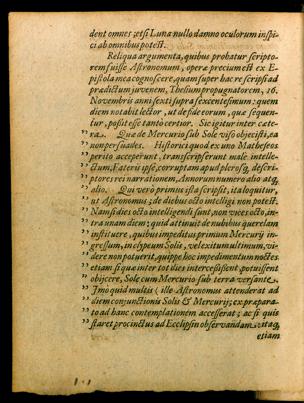 dent omnes; etsi Luna nullo damno oculorum inspi-
ci ab omnibus potest.
Reliqua argumenta, quibus probatur scripto-
rem fuisse Astronomum, operæ precium est ex E-
pistola mea cognoscere, quam super hac re scripsi ad
prædictum juvenem, Thesium propugnatorem, 16.
Novembris anni sexti supra sexcentesimum: quem
diem notabit lector, ut de fide eorum, quæ sequen-
tur, possit esse tanto certior. Sic igitur inter cæte-
„ ra. Quæ de Mercurio sub Sole viso objecisti, ea
„ non persuades. Historici quod ex uno Matheseos
„ perito acceperunt, transcripserunt male intelle-
„ ctum, Fateris ipse, corruptam apud plerosq; descri-
„ ptores rei narrationem, Annorum numero alio atq;
„ alio. Qui vero primus ista scripsit, ita loquitur,
„ ut Astronomus; de diebus octo intelligi non potest.
„ Nam si dies octo intelligendi sunt, non vices octo, in-
„ tra unam diem; quid attinuit de nubibus querelam
„ instituere, quibus impeditus primum Mercurij in-
„ gressum, in clypeum Solis, vel exitum ultimum, vi-
„ dere non potuerit, quippe hoc impedimentum noctes
„ etiam si quæ inter tot dies intercesissent potuissent
„ objicere, Sole cum Mercurio sub terra versante.
„ Imo quid multis (ille Astronomus attenderat ad
„ diem conjunctionis Solis & Mercurij; ex præpara-
„ to ad hanc contemplationem accesserat; ac si quis
„ staret procinctus ad Eclipsin observandam. itaq;
etiam